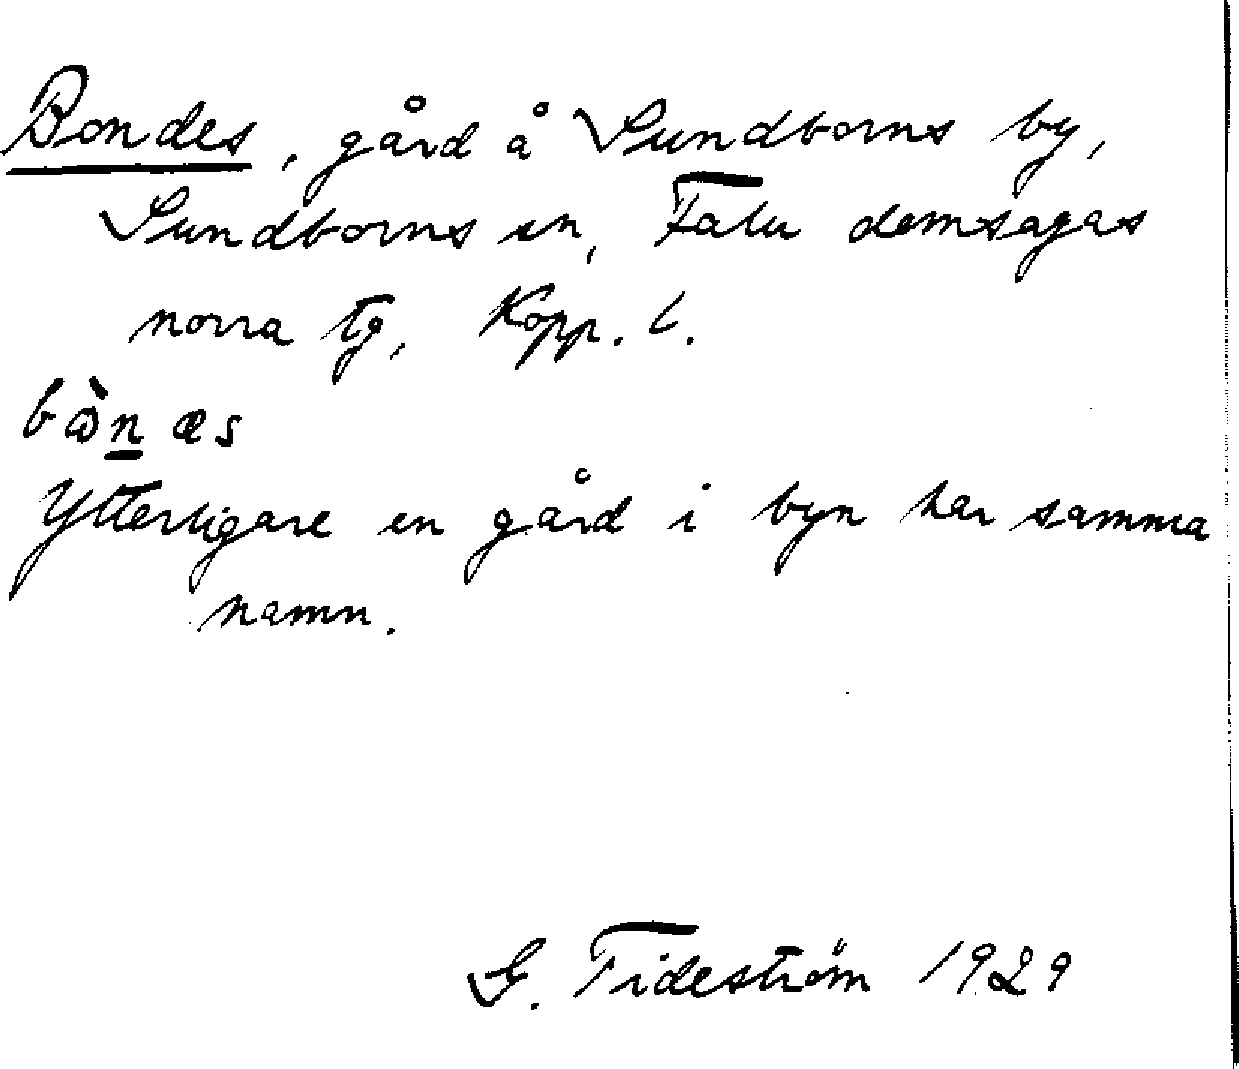 Bondes, gård å Sundborns by,
Sundborns sn, Falu domsagas
norra tg, Kopp. l.
bὼn æs
Ytterligare en gård i byn har samma
namn.
G. Tideström 1929